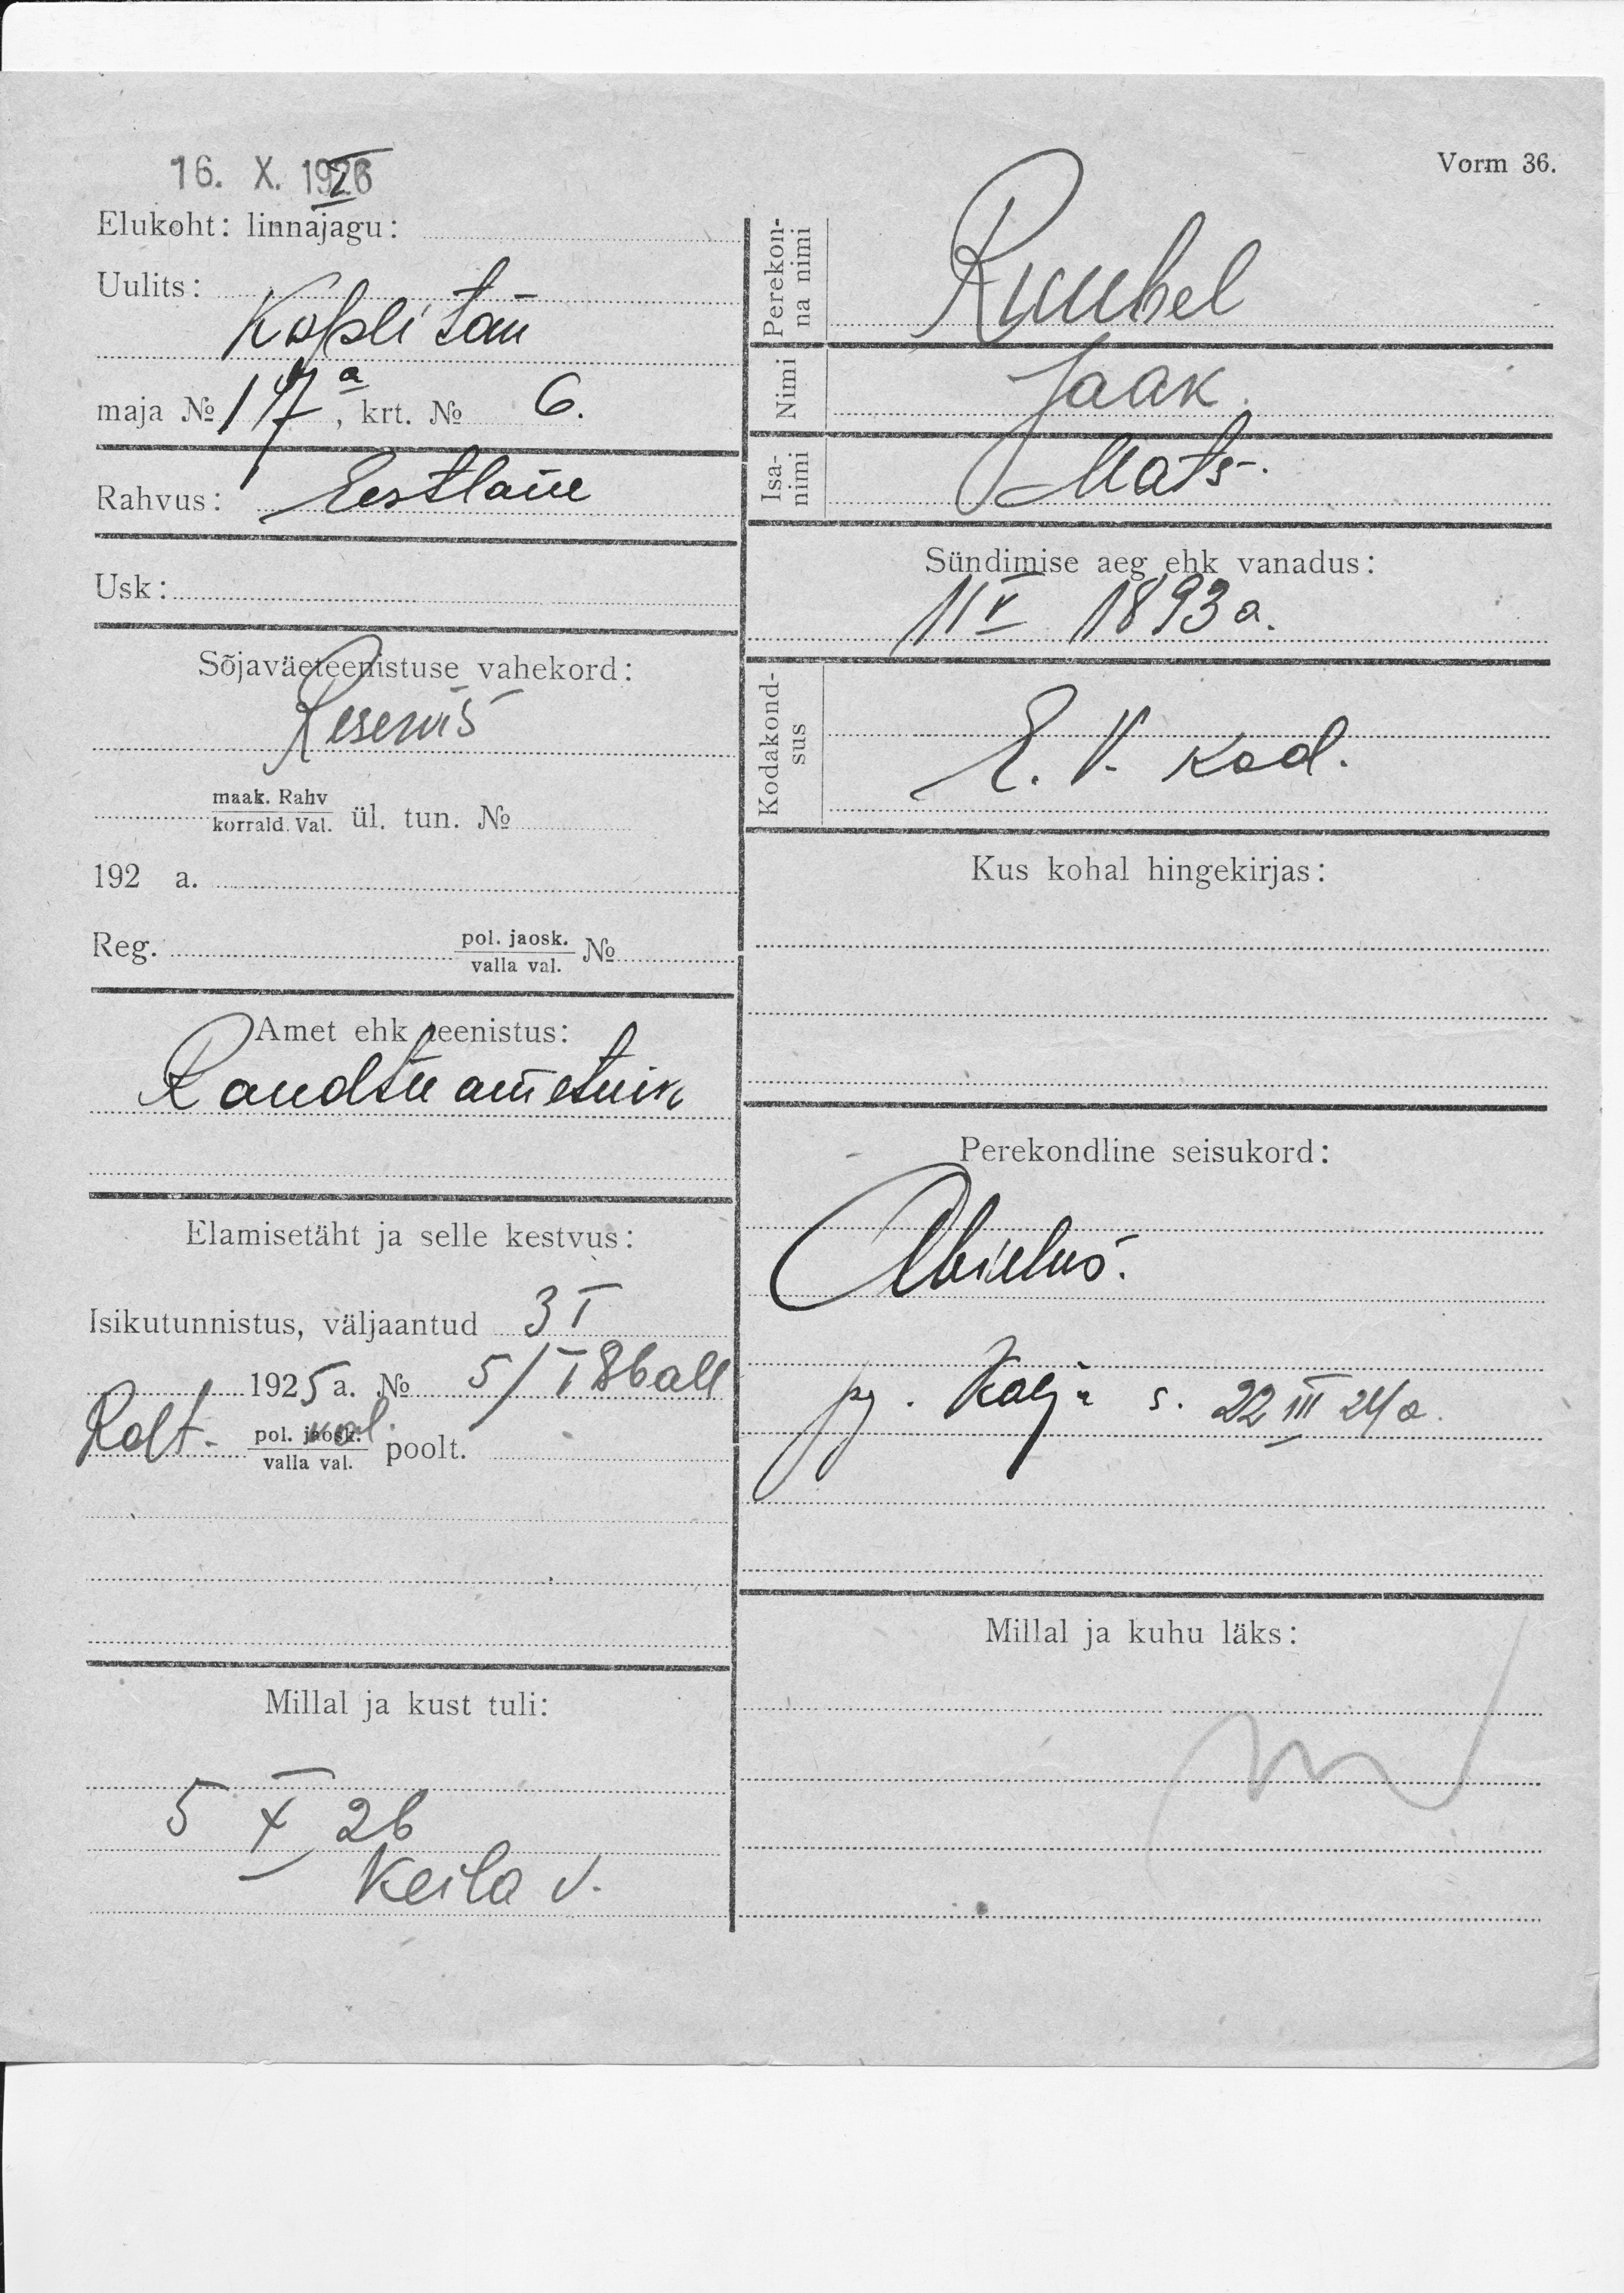 16. X. 1926
Vorm 36.
Elukoht: linnajagu: I
Uulits:
Kopli tän
maja № 17 a, krt. № 6.
Rahvus: Eestlane
Usk:
Sõjaväeteenistuse vahekord:
Reservis
maak. Rahv
korrald. Val. ül. tun. №
192 a.
Reg. pol. jaosk. №
valla val.
Amet ehk teenistus:
Raudtee ametnik
Elamisetäht ja selle kestvus:
Isikutunnistus, väljaantud 3 I
1925 a. № 5/I
pol. jaosk. poolt.
valla val.
Millal ja kust tuli:
5 X 26
Keila v.
Perekon-
na nimi
Ruubel
Nimi Jaak
Isa-
nimi
Mats.
Sündimise aeg ehk vanadus:
11 V 1893 a.
Kodakond-
sus
E. V. kod.
Kus kohal hingekirjas:
Perekondline seisukord:
Abielus.
pg. Kalju s. 22 III 24 a.
Millal ja kuhu läks: